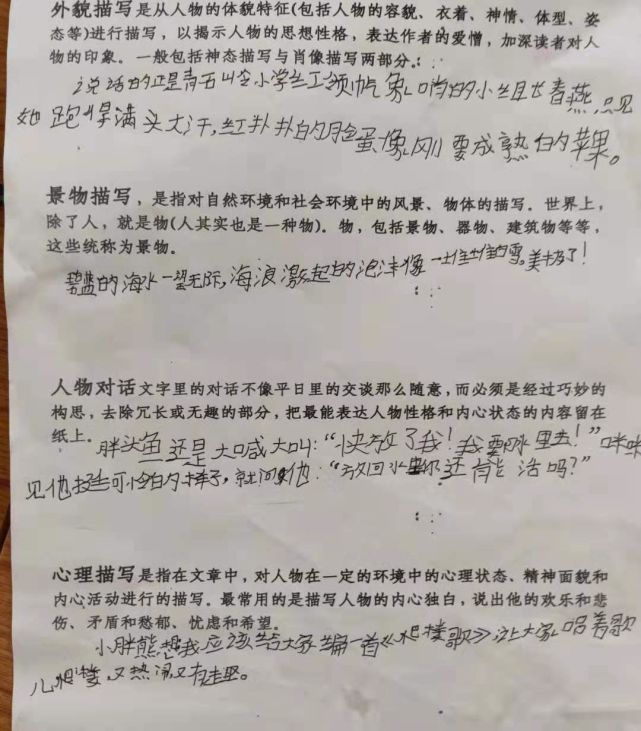 外貌描写是从人物的体貌特征(包括人物的容貌、衣着、神情、体型、姿
态等)进行描写，以揭示人物的思想性格，表达作者的爱憎，加深读者对人
物的印象。一般包括神态描写与肖像描写两部分。
说话的正是青石小学红领巾气象哨的小组长春燕,只见
她跑得满头大汗,红扑扑的脸蛋像刚要成熟的苹果。
景物描写，是指对自然环境和社会环境中的风景、物体的描写。世界上，
除了人，就是物(人其实也是一种物)。物，包括景物、器物、建筑物等等，
这些统称为景物。
碧蓝的海水一望无际,海浪激起的泡沫像一堆堆的雪。美极了!
人物对话文字里的对话不像平日里的交谈那么随意，而必须是经过巧妙的
构思，去除冗长或无趣的部分，把最能表达人物性格和内心状态的内容留在
纸上。
胖头鱼还是大喊大叫:“快放了我!我要水里去!”咪咪
见他挺可怜的样子,就问他:“放回水里你还能活吗?”
心理描写是指在文章中，对人物在一定的环境中的心理状态、精神面貌和
内心活动进行的描写。最常用的是描写人物的内心独白，说出他的欢乐和悲
伤、矛盾和愁郁、忧虑和希望。
小胖熊想我应该给大家编一首《爬楼歌》让大家唱着歌
儿爬楼,又热闹又有趣。